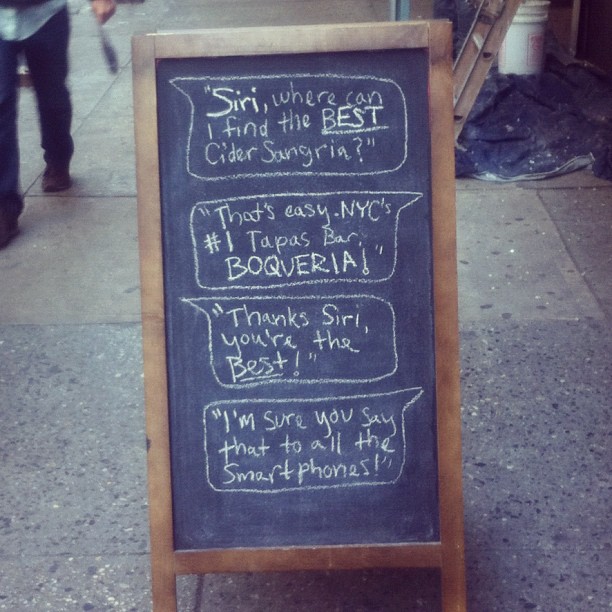 "Siri, where can
i find the BEST
Cider Sangria?"
"That's easy. NYC's
#1 Tapas Bar,
BOQUERIA!"
"Thanks Siri,
you're the
Best!"
"I'm sure you say
that to all the
Smartphones!"